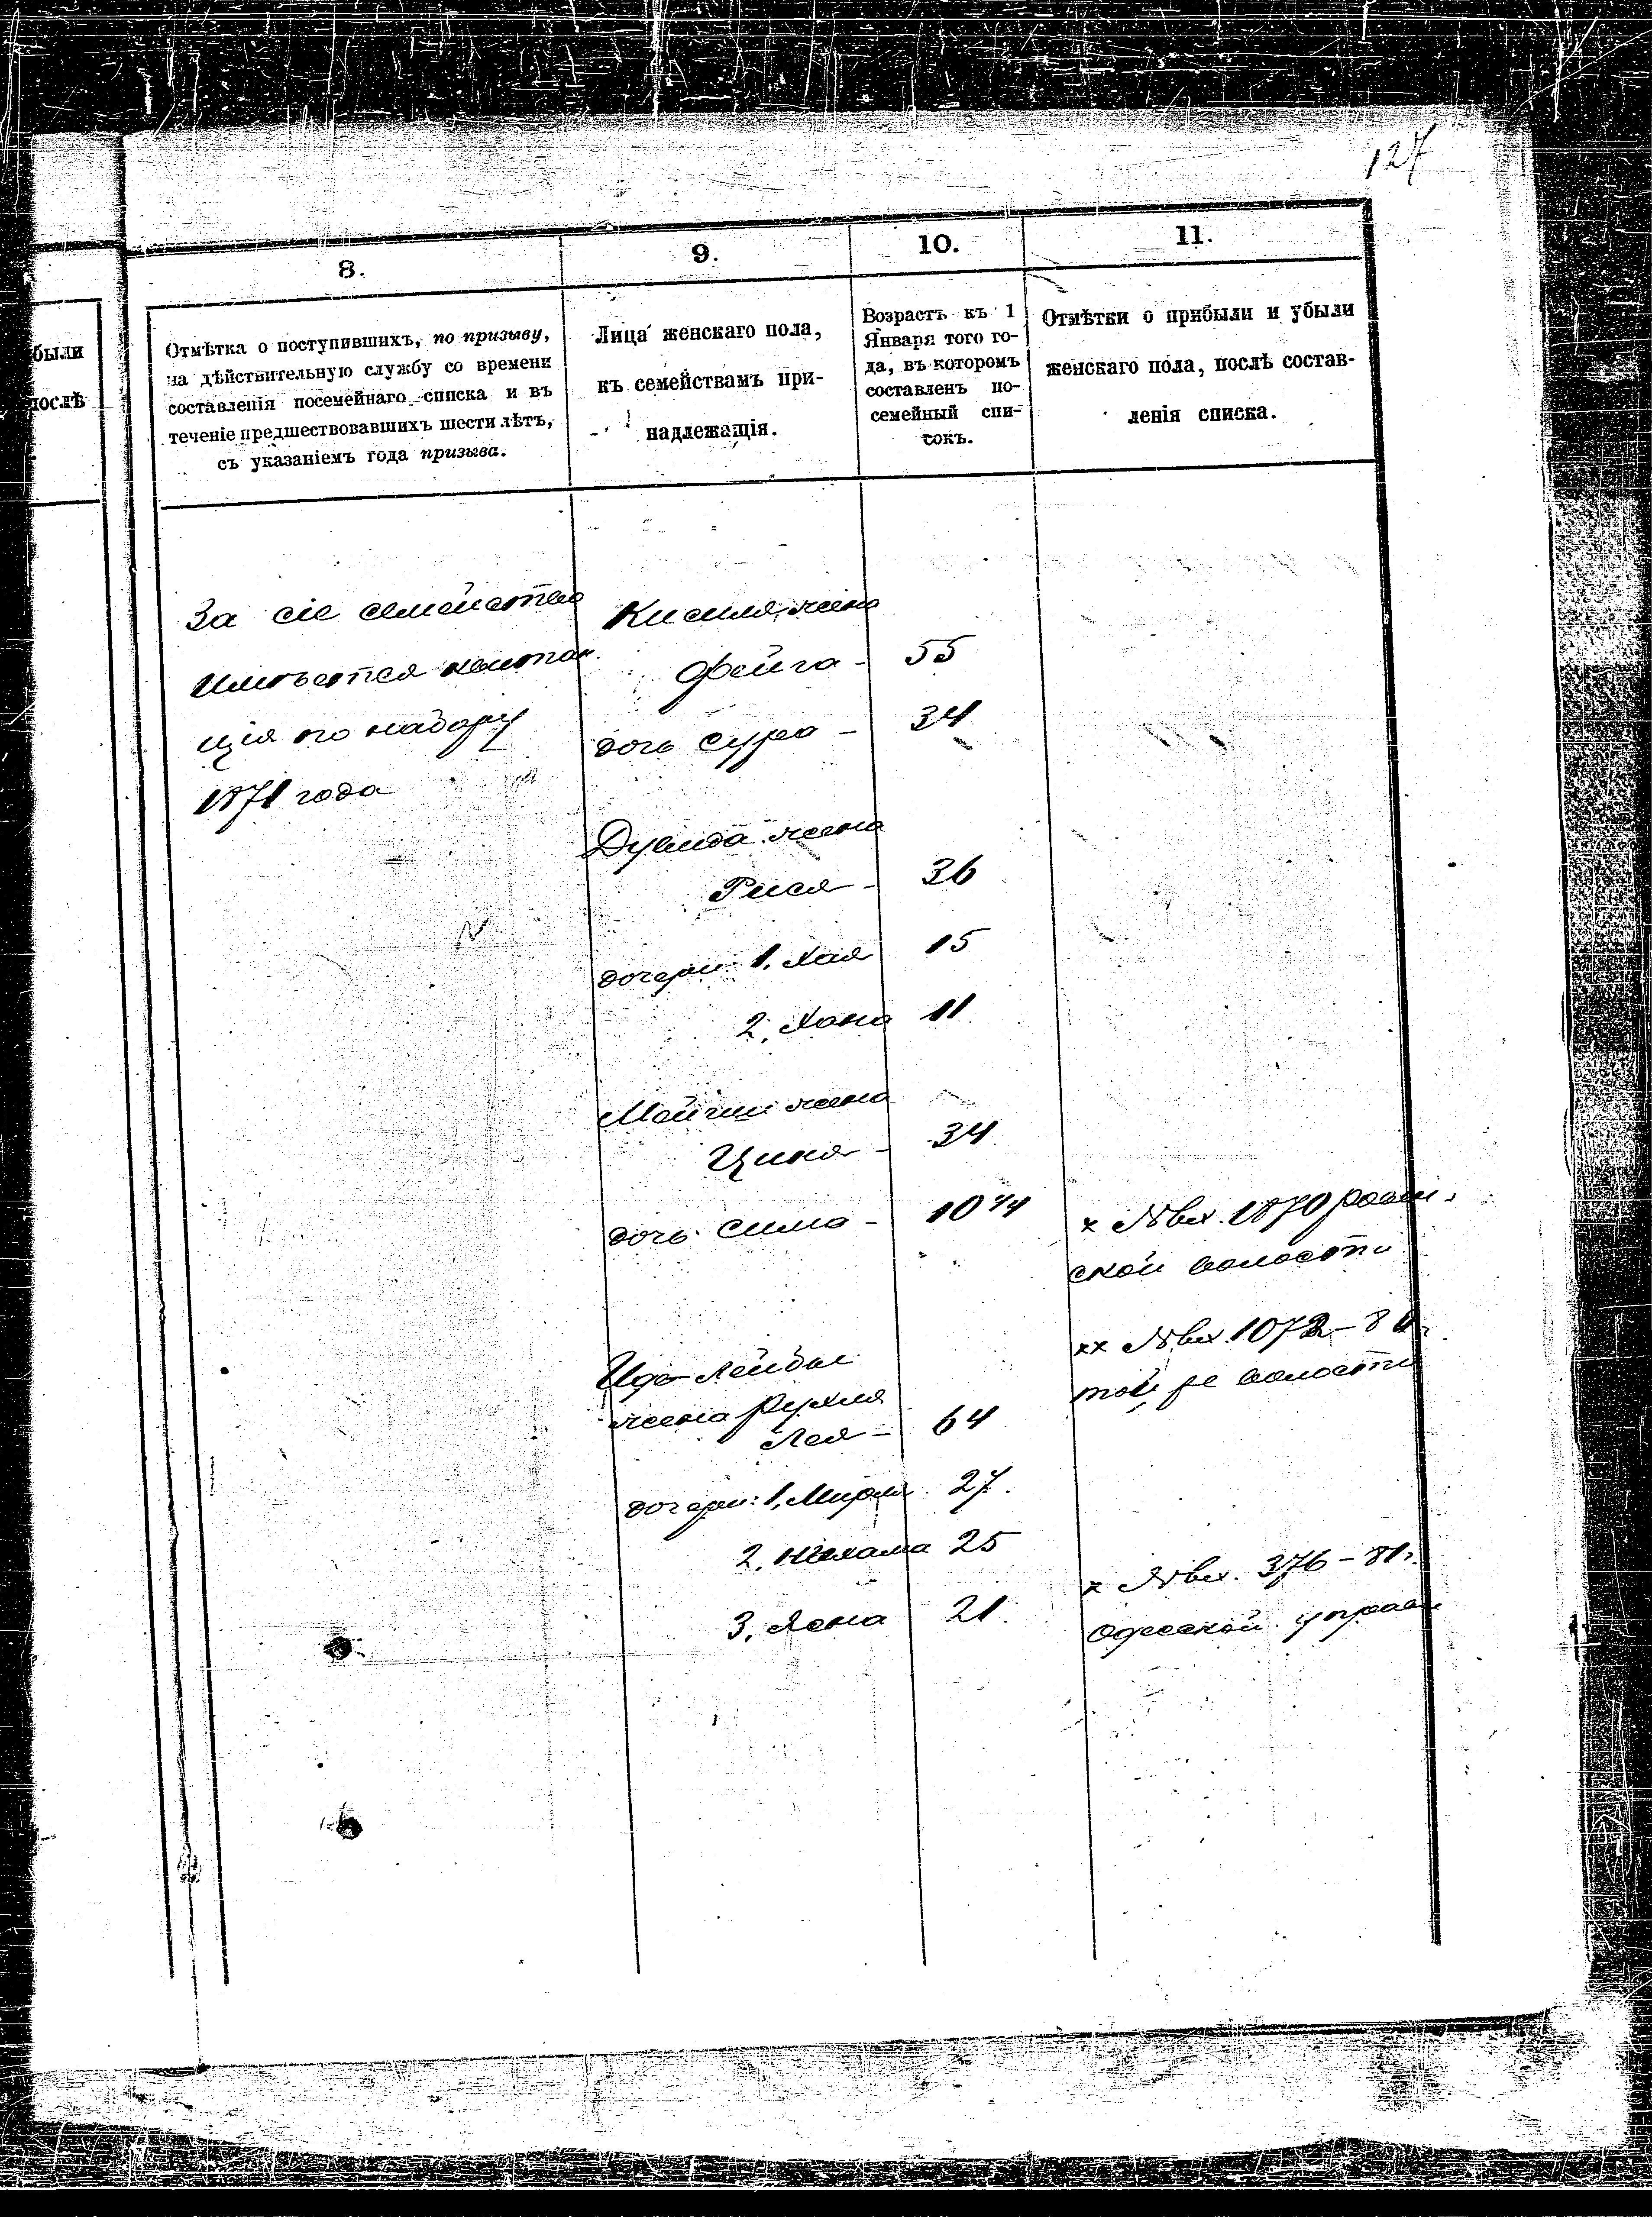 127
были
послѣ
8.
9.
10.
11.
Отмѣтка о поступившихъ, по призыву,
на дѣйствительную службу со времени
составленія посемейнаго списка и въ
теченіе предшествовавшихъ шести лѣтъ,
съ указаніемъ года призыва.
Лица женскаго пола,
къ семействамъ при-
надлежащія.
Возрастъ къ 1
Января того го-
да, въ которомъ
составленъ по-
семейный спи-
сокъ.
Отмѣтки о прибыли и убыли
женскаго пола, послѣ состав-
ленія списка.
За сіе семейство
имѣется квитан
ція по набору
1871 года
Кисиля жена
Фейга - 55
дочь Сура - 34
Дувида жена
Рися - 36
дочери 1, Хая 15
2, Хана 11
жена
Циня - 34
дочь Сима - 10 3/4
х №вх. 1870
ской волости
Лейбы
жена Рухля
Лея - 64
хх №вх. 1072 -
той же волости
дочери: 1, Мирля 27.
2, Нехама 25
3, 21.
х №вх. 376 - 81г.
Одесской управы